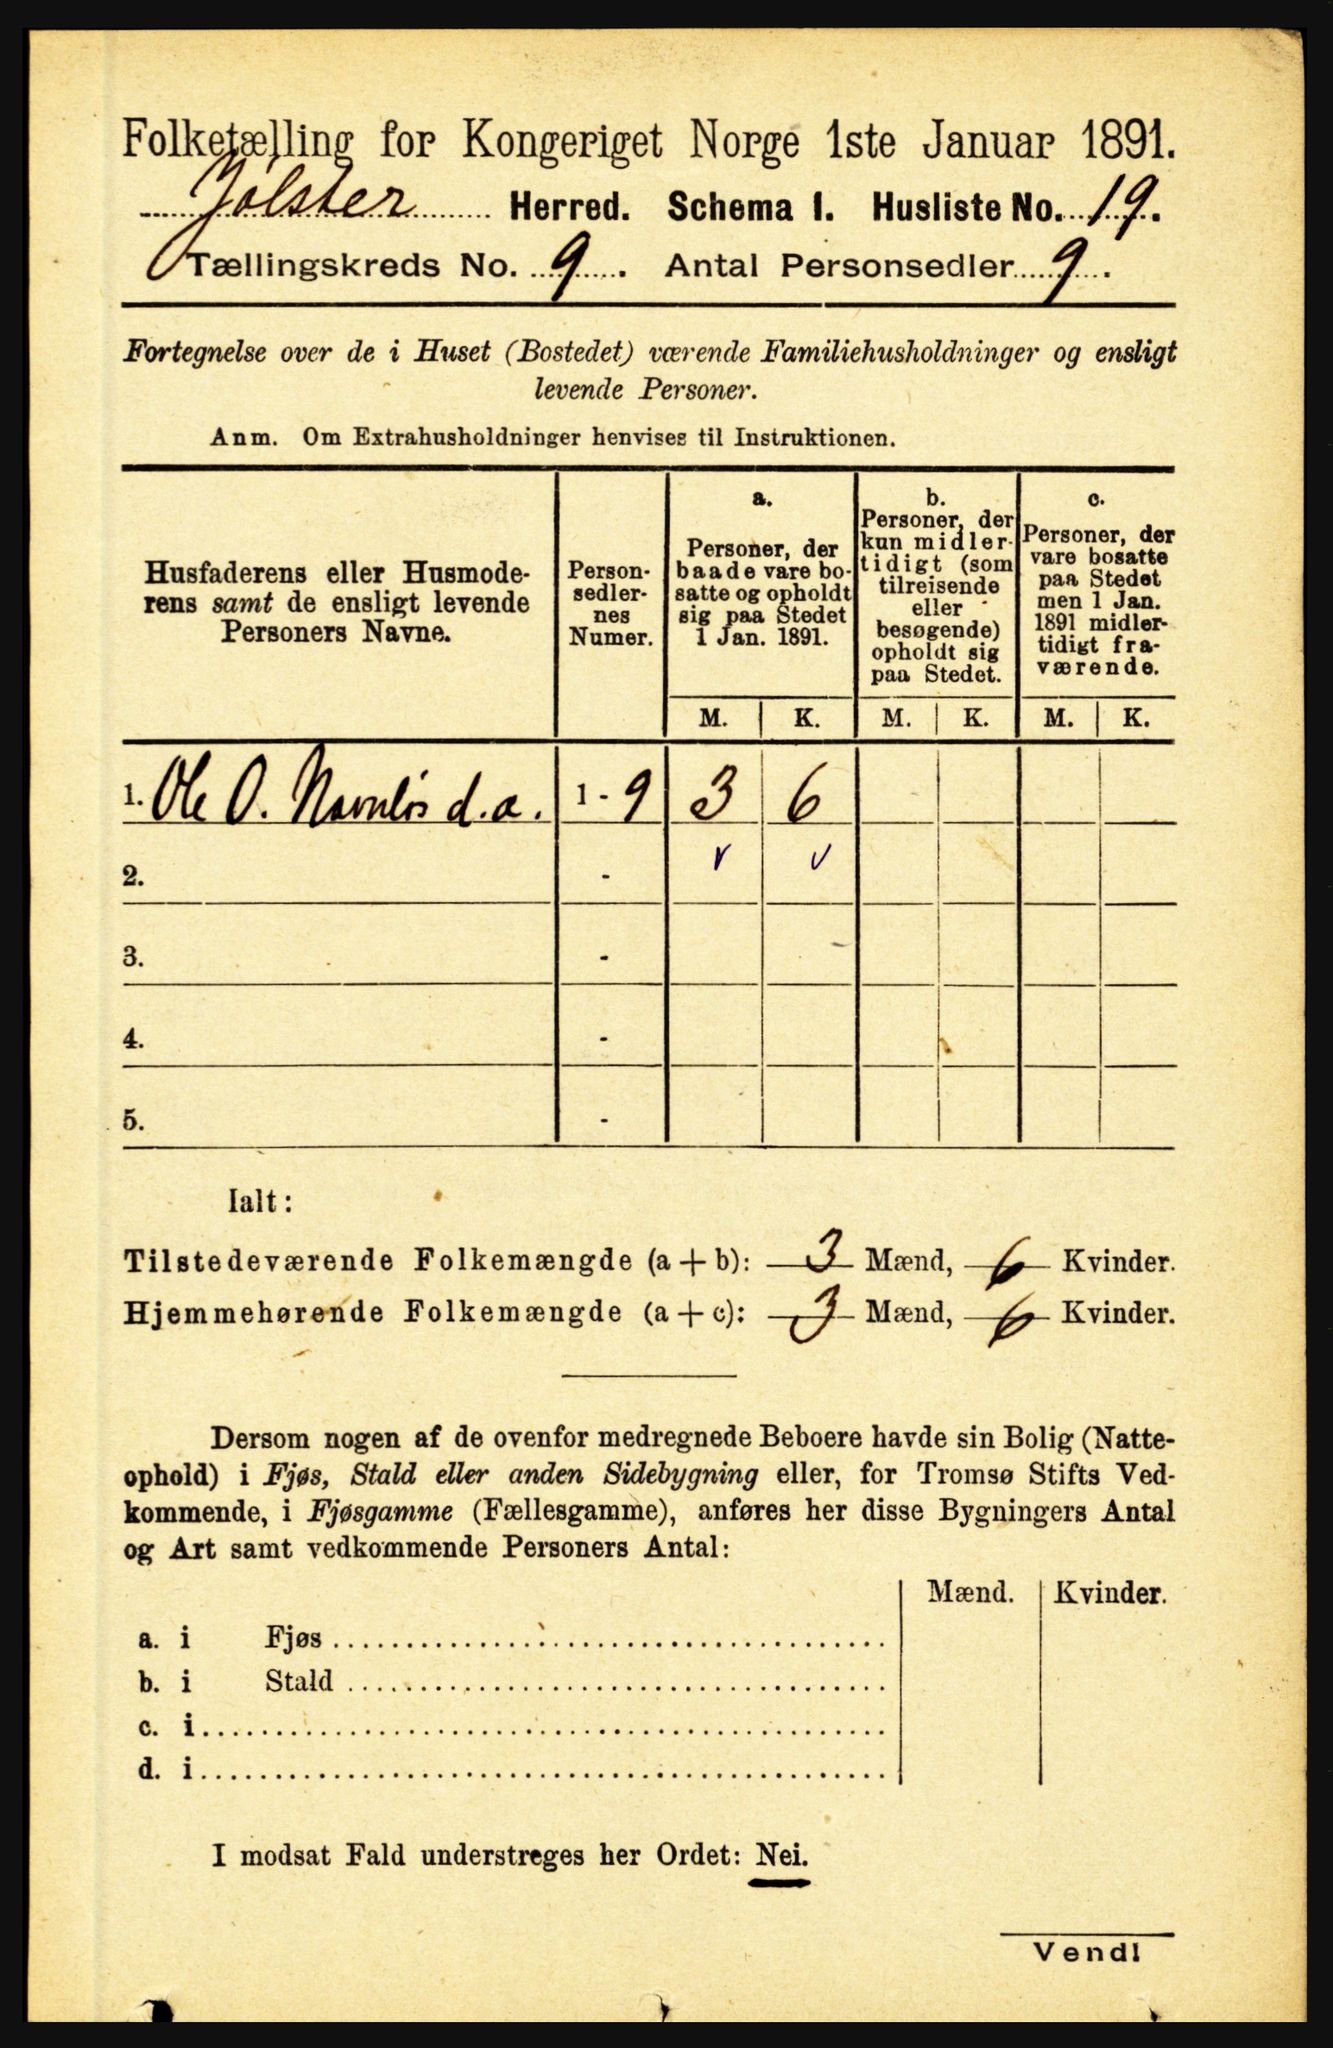 Folketælling for Kongeriget Norge 1ste Januar 1891.
Jølster Herred. Schema I. Husliste No. 19.
Tællingskreds No. 9. Antal Personsedler 9.
Fortegnelse over de i Huset (Bostedet) værende Familiehusholdninger og ensligt
levende Personer.
Anm. Om Extrahusholdninger henvises til Instruktionen.
Husfaderens eller Husmode-
rens samt de ensligt levende
Personers Navne.
Person-
sedler-
nes
Numer.
a.
Personer, der
baade vare bo-
satte og opholdt
sig paa Stedet
1 Jan. 1891.
b.
Personer, der
kun midler-
tidigt (som
tilreisende
eller
besøgende)
opholdt sig
paa Stedet.
c.
Personer, der
vare bosatte
paa Stedet
men 1 Jan.
1891 midler-
tidigt fra-
værende.
M. K. M. K. M. K.
1. Ole O. Navnløs d.a. 1 - 9 3 6
2. -
3. -
4. -
5. -
Ialt:
Tilstedeværende Folkemængde (a + b): 3 Mænd, 6 Kvinder.
Hjemmehørende Folkemængde (a + c): 3 Mænd, 6 Kvinder.
Dersom nogen af de ovenfor medregnede Beboere havde sin Bolig (Natte-
ophold) i Fjøs, Stald eller anden Sidebygning eller, for Tromsø Stifts Ved-
kommende, i Fjøsgamme (Fællesgamme), anføres her disse Bygningers Antal
og Art samt vedkommende Personers Antal:
Mænd. Kvinder.
a. i Fjøs
b. i Stald
c. i
d. i
I modsat Fald understreges her Ordet: Nei.
Vend!